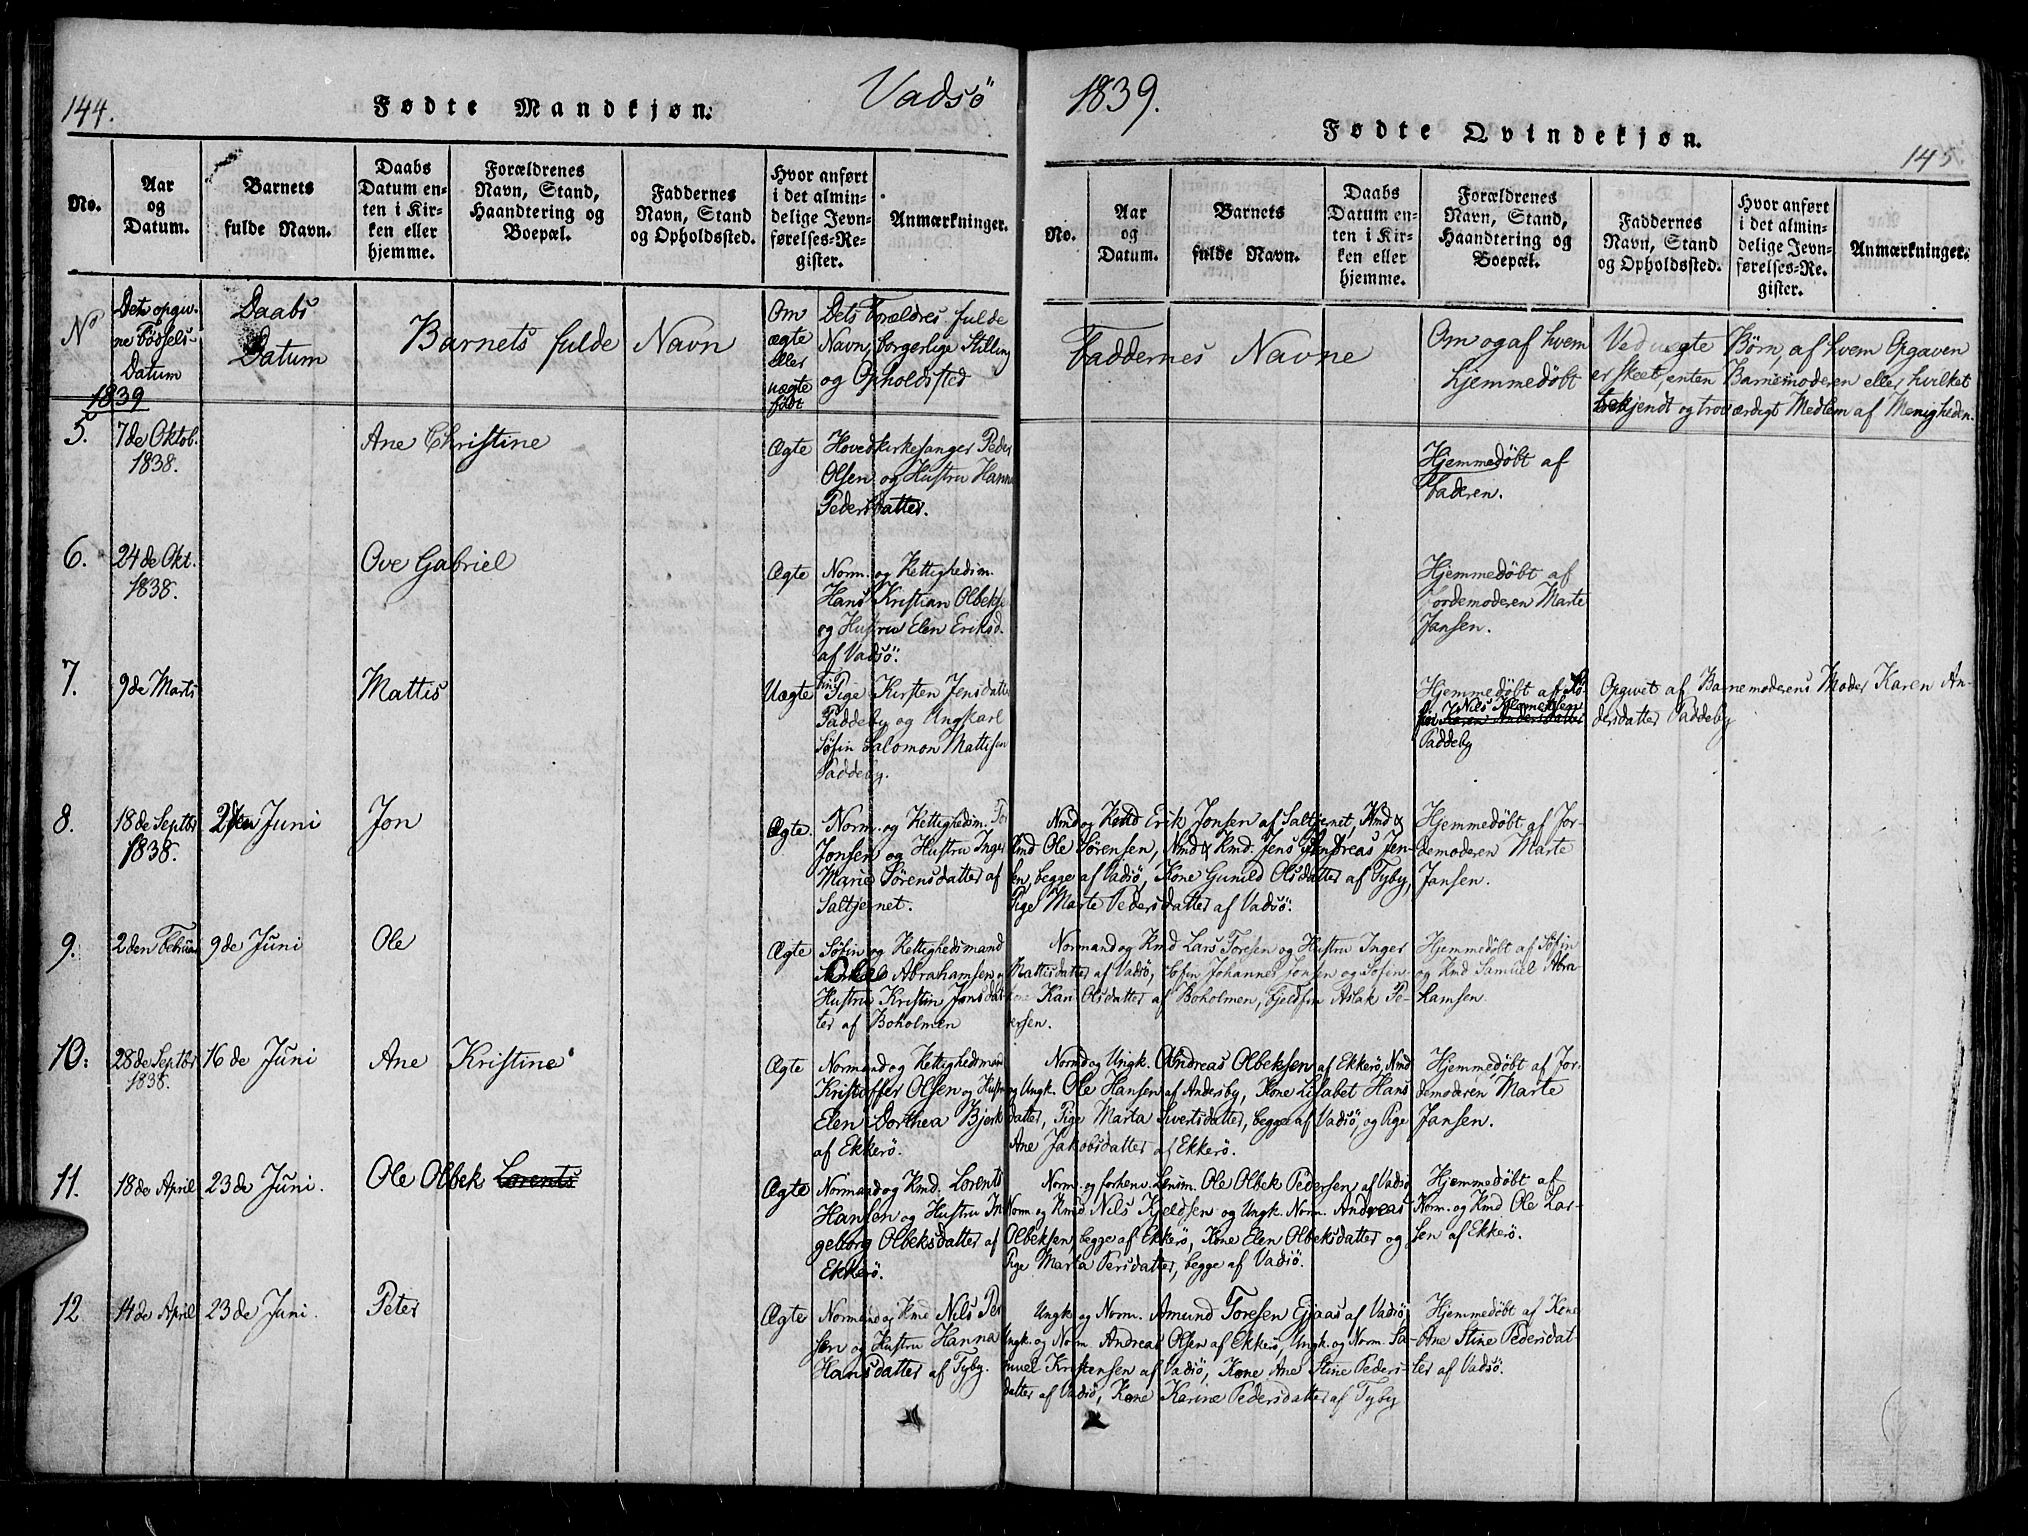 144.
Fødte Mandkjøn.
Vadsö
No.
Aar og Datum.
Barnets fulde Navn.
Daabs Datum enten i Kirken eller hjemme.
Forældrenes Navn, Stand, Haandtering og Boepæl.
Faddernes Navn, Stand og Opholdssted.
Hvor anført i det almindelige Jevnførelses-Register.
Anmærkninger.
No
Det opgivne Födsels-Datum
Daabs Datum
Barnets fulde Navn
Om ægte eller uægte født
Dets Forældres fulde Navn, borgerlige Stilling og Opholdsted
1839
5.
7de Oktob.
1838.
Ane Christine
Ægte
Hovedkirkesanger Peder
Olsen og Hustru Hanna
Pedersdatter.
6.
24de Okt.
1838.
Ove Gabriel
Ægte
Norm. og Rettighedsm.
Hans Kristian Olbeks
og Hustru Elen Eriksd.
af Vadsö.
7.
9de Marts
Mattis
Uægte
Pige Kirsten Jensdatter
Paddeby og Ungkarl
Söfin Salomon Mattisen
Paddeby.
8.
18de Septbr
1838.
Juni
Jon
Ægte.
Norm. og Rettighedsm.
Jonsen og Hustru Inger
Marie Sörensdatter af
Saltjernet.
9.
2den Februar
9de Juni
Ole
Ægte
Söfin og Rettighedsmand
Ole Abrahamsen og
Hustru Kristin Jonsdat-
ter af Boholmen
10.
28de Septbr
1838.
16de Juni
Ane Kristine
Ægte
Normand og Rettighedsmand
Kristoffer Olsen og Hustru
Elen Dorthea Bjerk
af Ekkerö.
11.
18de April
23de Juni.
Ole Olbek Lorents
Ægte
Normand og Rmd. Lorents
Hansen og Hustru In-
geborg Olbeksdatter af
Ekkerö.
12
14de April
23de Juni.
Peter
Ægte
Normand og Rmd Nils Per-
sen og Hustru Hanna
Hansdatter af Tyby.
1839.
Fødte Qvindekjøn.
145
No.
Aar og Datum.
Barnets fulde Navn.
Daabs Datum enten i Kirken eller hjemme.
Forældrenes Navn, Stand, Haandtering og Boepæl.
Faddernes Navn, Stand og Opholdssted.
Hvor anført i det almindelige Jevnførelses-Register.
Anmærkninger.
Faddernes Navne
Om og af hvem hjemmedöbt
Ved uægte Børn, af hvem Opgaven
er skeet, enten Barnemoderen eller hvilket
bekjendt og troværdigt Medlem af Menigheden.
Hjemmedöbt af
Faderen.
Hjemmedöbt af
Jordemoderen Marte
Jansen.
Hjemmedöbt af
Nils Klemetsen
Karen Andersdatter
Paddeby
Opgivet af Barnemoderens Moder Karen An-
dersdatter Paddeby
Nmd og Rmd Erik Jonsen af Saltjernet, Nmd &
Rmd Ole Sörensen, Nmd & Rmd. Jens Andreas Jen-
sen, begge af Vadsö, Kone Gunild Olsdatter af Tyby,
Pige Marte Pedersdatter af Vadsö.
Hjemmedöbt af Jor-
demoderen Marte
Jansen.
Normand og Rmd Lars Toresen og Hustru Inger
Mattisdatter af Vadsö, Söfin Johannes Jonsen og Söfin-
Kari Olsdatter af Boholmen, Fjeldfin Aslak Pe-
ersen.
Hjemmedöbt af Söfin
og Rmd Samuel Abra-
hamsen.
Normd og Ungk. Andreas Olbeksen af Ekkerö, Nmd
og Ungk. Ole Hansen af Andersby, Kone Lisabet Hans
datter, Pige Marta Sivertsdatter, begge af Vadsö, og Pige
Ane Jakobsdatter af Ekkerö.
Hjemmedöbt af Jor-
demoderen Marte
Jansen.
Norm. og forhenv. Lensm. Ole Olbek Pedersen af Vadsö
Norm. og Rmd Nils Kjeldsen og Ungk. Norm. Andreas
Olbeksen, begge af Ekkerö, Kone Elen Olbeksdatter og
Pige Marta Persdatter, begge af Vadsö.
Hjemmedöbt af
Norm. og Rmd Ole Lar-
sen af Ekkerö.
Ungk. og Norm. Amund Toresen Gjaas af Vadsö,
Ungk. og Norm. Andreas Olsen af Ekkerö, Ungk. og Norm. Sa-
muel Kristensen af Vadsö, Kone Ane Stine Peders-
datter af Vadsö, Kone Karine Pedersdatter af Tyby
Hjemmedöbt af Kone
Ane Stine Pedersdat-
ter af Vadsö.